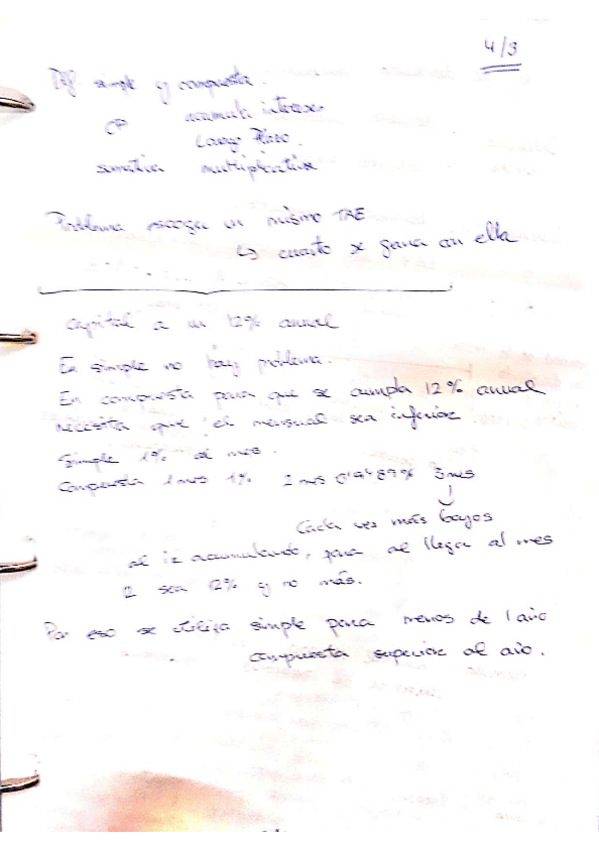 4/3
Dif simple y compuesta.
CP acumula intereses
Largo Plazo.
sumativa multiplicativa
Problema escoger un mismo TAE
↳ cuanto se gana con ella
Capital a un 12% anual
En simple no hay problema.
En compuesta para que se cumpla 12% anual
necesita que el mensual sea inferior
Simple 1% al mes.
Compuesta 1 mes 1% 2 mes 0'9489% 3 mes
↓
Cada vez más bajos
al ir acumulando, para al llegar al mes
12 sea 12% y no más.
Por eso se utiliza simple para menos de 1 año
compuesta superior al año.